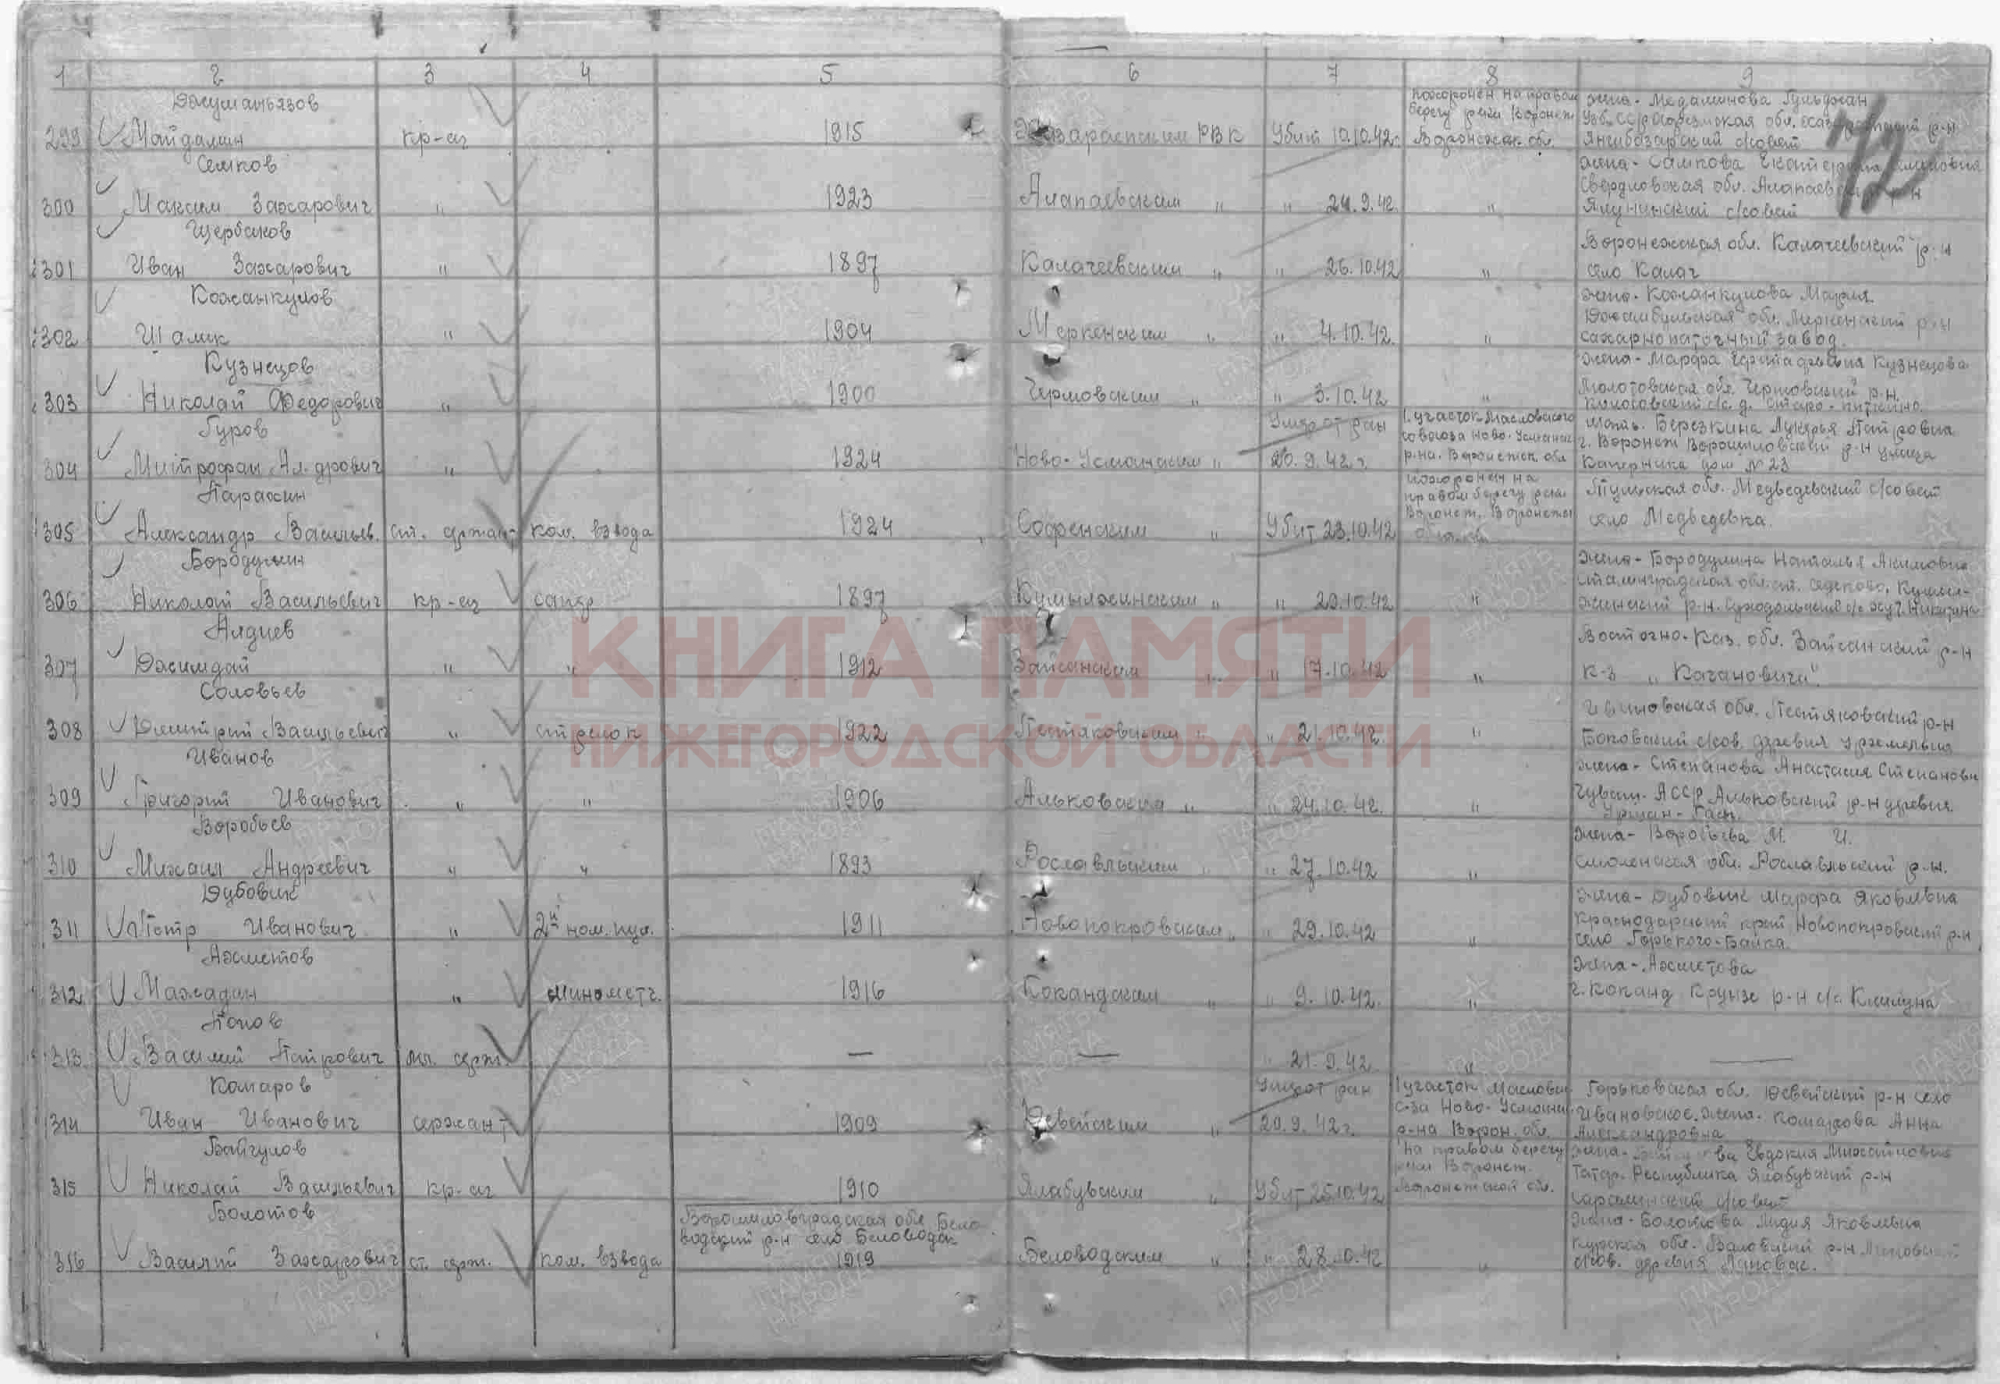 1 2 3 4 5 6 7 8 9
72
Джуманьязов
299 Майдамин кр-ец 1915 Хазараспским РВК Убит 10.10.42
похоронен на правом
берегу реки Воронеж
Воронежск. обл.
жена - Медаминова Гульджан
Янгибазарский с/совет
Семков
300 Максим Захарович " 1923 Алапаевским " " 24.9.42 "
Свердловская обл. Алапаевский р-н
Ялунинский с/совет
Щербаков
301 Иван Захарович " 1897 Калачеевским " " 26.10.42 "
Воронежская обл. Калачеевский р-н
село Калач
Кожанкулов
302 Шалик " 1904 Меркенским " " 4.10.42 "
жена - Кожанкулова Мария
Джамбульская обл. Меркенский р-н
сахарнопаточный завод.
Кузнецов
303 Николай Федорович " 1900 Чермовским " " 3.10.42 "
жена - Марфа Кузнецова
Молотовская обл. Чермовский р-н.
Гуров
304 Митрофан Ал-дрович " 1924 Ново-Усманским " Умер от ран 20.9.42 г.
1 участок Масловского
совхоза Ново-Усманск
р-на. Воронежск. обл
мать. Березкина Лукерья Петровна
г. Воронеж Ворошиловский р-н улица
Каперника дом № 23
Парахин
305 Александр Васильев. ст. сержан- ком. взвода 1924 Софренским " Убит 23.10.42
похоронен на
правом берегу реки
Воронеж. Воронежск
Тульская обл. Медведевский с/совет
село Медведевка.
Бородулин
306 Николай Васильевич кр-ец сапер 1897 Кумылженским " " 20.10.42 "
жена - Бородулина Наталья Акимовна
Алдиев
307 Джимдай " " 1912 Зайсанским " " 17.10.42 "
Восточно-Каз. обл. Зайсанский р-н
к-з "Кагановича".
Соловьев
308 Дмитрий Васильевич " стрелок 1922 Пестяковским " " 21.10.42. "
Ивановская обл. Пестяковский р-н
Иванов
309 Григорий Иванович " " 1906 Альковским " " 24.10.42. "
жена - Степанова Анастасия Степановн
Чуваш. АССР Альковский р-н деревня
Воробьев
310 Михаил Андреевич " " 1893 Рославльским " " 27.10.42 "
жена - Воробьева М. И.
Смоленская обл. Рославльский р-н.
Дубовик
311 Петр Иванович " 2й ном. пул. 1911 Новопокровским " " 29.10.42 "
жена - Дубовик Марфа Яковлевна
Краснодарский край Новопокровский р-н
село Горького-Балка.
Ахметов
312 Мажадин " минометч. 1916 Кокандским " " 9.10.42. "
жена - Ахметова
Попов
313 Василий Петрович мл. серж. — — " 21.9.42. " —
Комаров
314 Иван Иванович сержант 1909 Девейским " Умер от ран 20.9.42 г.
1 участок Масловск
с-за Ново-Усманск
р-на Ворон. обл.
Горьковская обл. Девейский р-н село
Ивановское. жена - Комарова Анна
Александровна
Байгулов
315 Николай Васильевич кр-ец 1910 Ялабувским " Убит 25.10.42
На правом берегу
реки Воронеж.
Воронежской обл.
Евдокия Михайловна
Татар. Республика Ялабувский р-н
Болотов
316 Василий Захарович ст. серж. ком. взвода
Ворошиловградская обл Бело-
водский р-н село Беловодск
1919 Беловодским " " 28.10.42 "
жена - Болотова Лидия Яковлевна
КНИГА ПАМЯТИ
НИЖЕГОРОДСКОЙ ОБЛАСТИ
ПАМЯТЬ НАРОДА